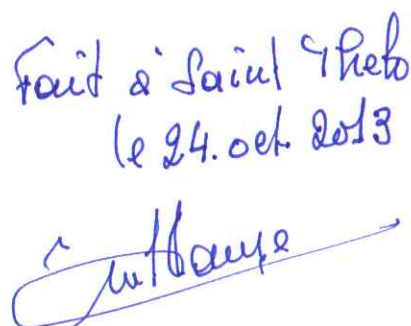 Fait à Saint Thelo
le 24. oct. 2013